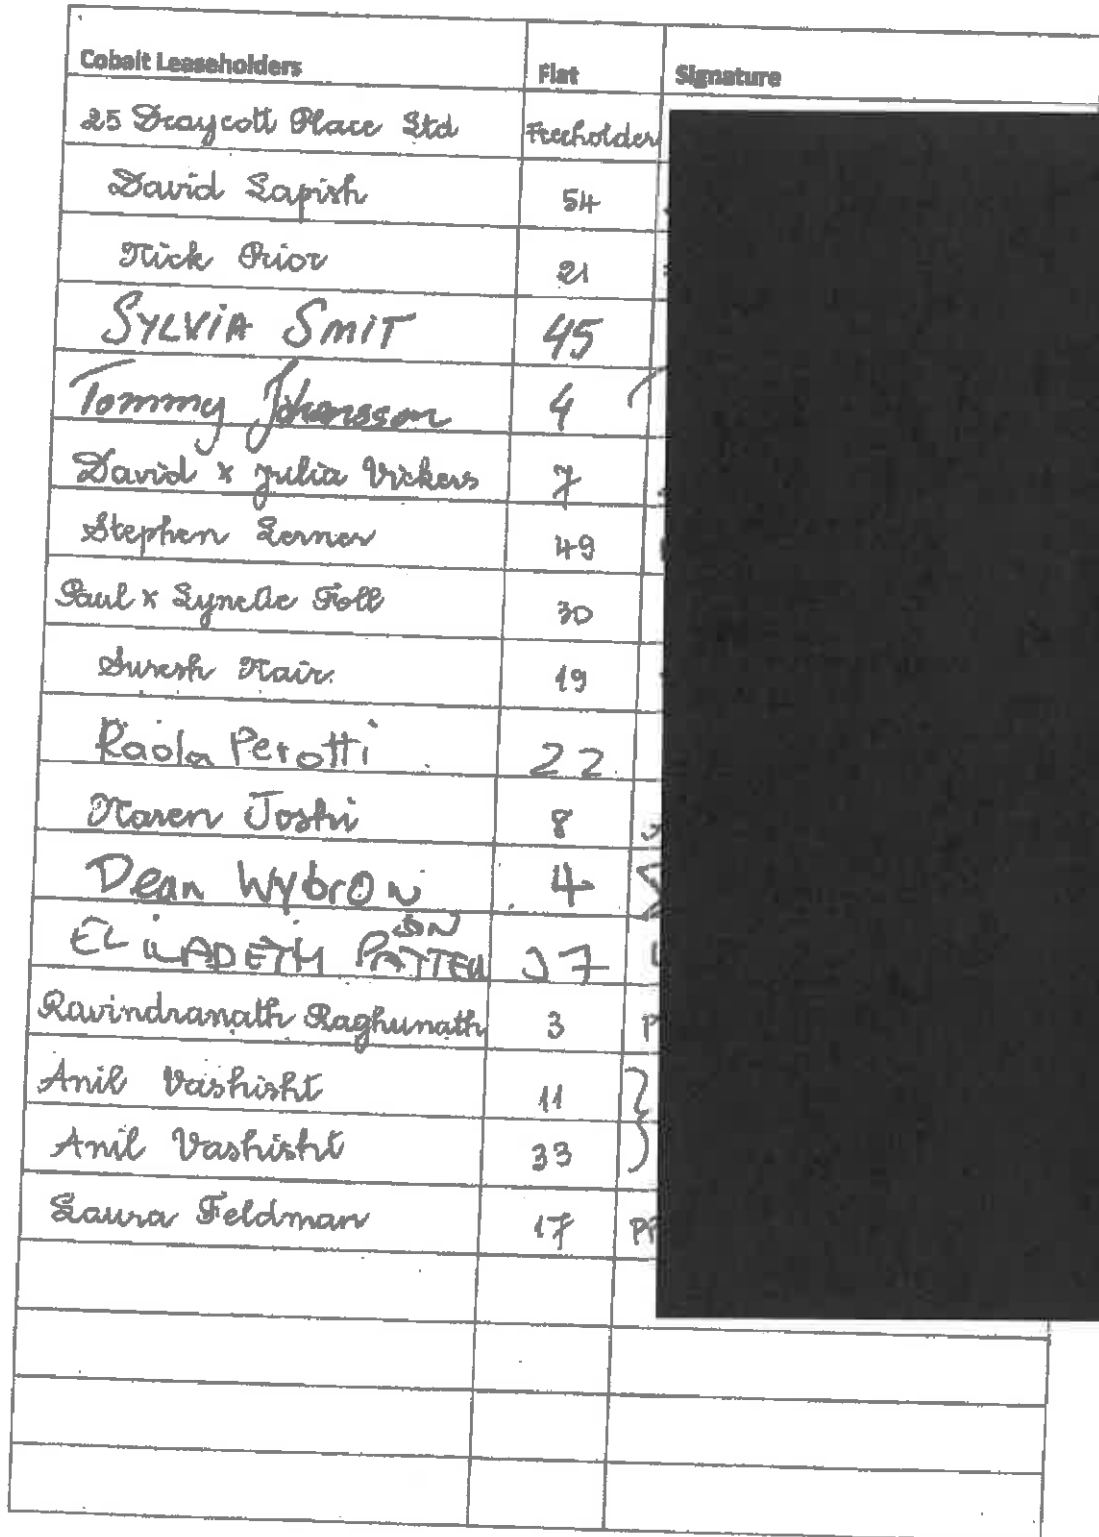 Cobalt Leaseholders Flat Signature
25 Draycott Place Ltd Freeholder
David Lapish 54
Nick Prior 21
SYLVIA SMIT 45
Tommy Johansson 4
David & Julia Vickers 7
Stephen Lerner 49
Paul & Lynette Foll 30
Suresh Nair 19
Paola Perotti 22
Naren Joshi 8
Dean Wybron 4
ELIZABETH PATTERSON 37
Ravindranath Raghunath 3 P
Anil Vashisht 11
Anil Vashisht 33
Laura Feldman 17 PP